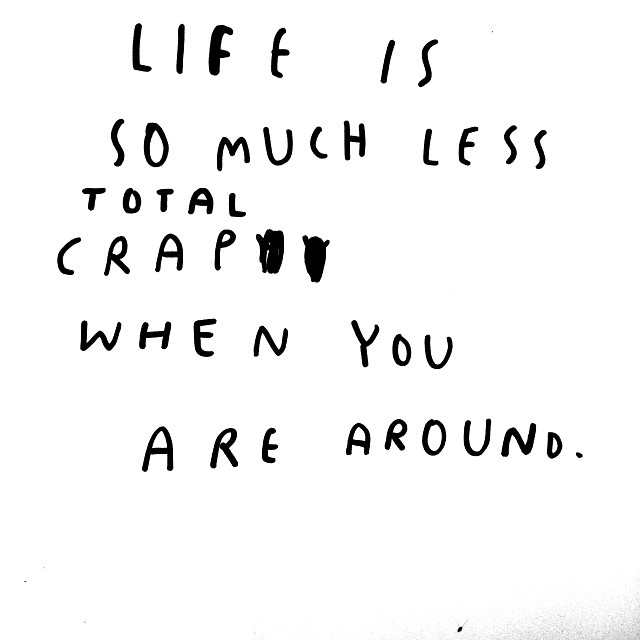 LIFE IS
SO MUCH LESS
TOTAL
CRAP
WHEN YOU
ARE AROUND.